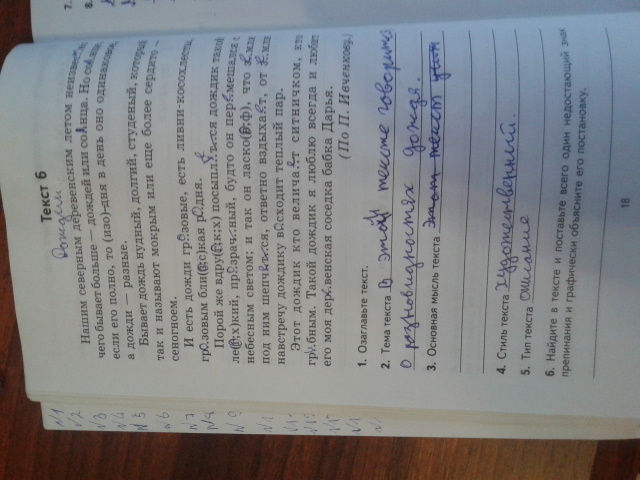 Текст 6
Дожди
Нашим северным деревенским летом неизвестно
чего бывает больше — дождей или солнца. Но солнца,
если его полно, то (изо)-дня в день оно одинаковое,
а дожди — разные.
Бывает дождь нудный, долгий, студеный, который
так и называют мокрым или еще более сердито —
сеногноем.
И есть дожди грозовые, есть ливни-косохлесты,
грозовым бли(з;с)кая родня.
Порой же вдру(г;к;х) посыпл..тся дождик такой
ле(г;х)кий, прозрачный, будто он перемешался с
небесным светом; и так он ласко(в;ф), что земля
под ним шепчется, ответно вздыхает, от земли
навстречу дождику восходит теплый пар.
Этот дождик кто величает ситничком, кто
грибным. Такой дождик я люблю всегда и любит
его моя деревенская соседка бабка Дарья.
(По П. Ивченкову.)
1. Озаглавьте текст.
2. Тема текста В этом тексте говорится
о разновидностях дождя.
3. Основная мысль текста Этот текст
4. Стиль текста художественный.
5. Тип текста описание
6. Найдите в тексте и поставьте всего один недостающий знак
препинания и графически объясните его постановку.
18
7.
8.
№1
№2
№3
№4
№5
№6
№7
№8
№9